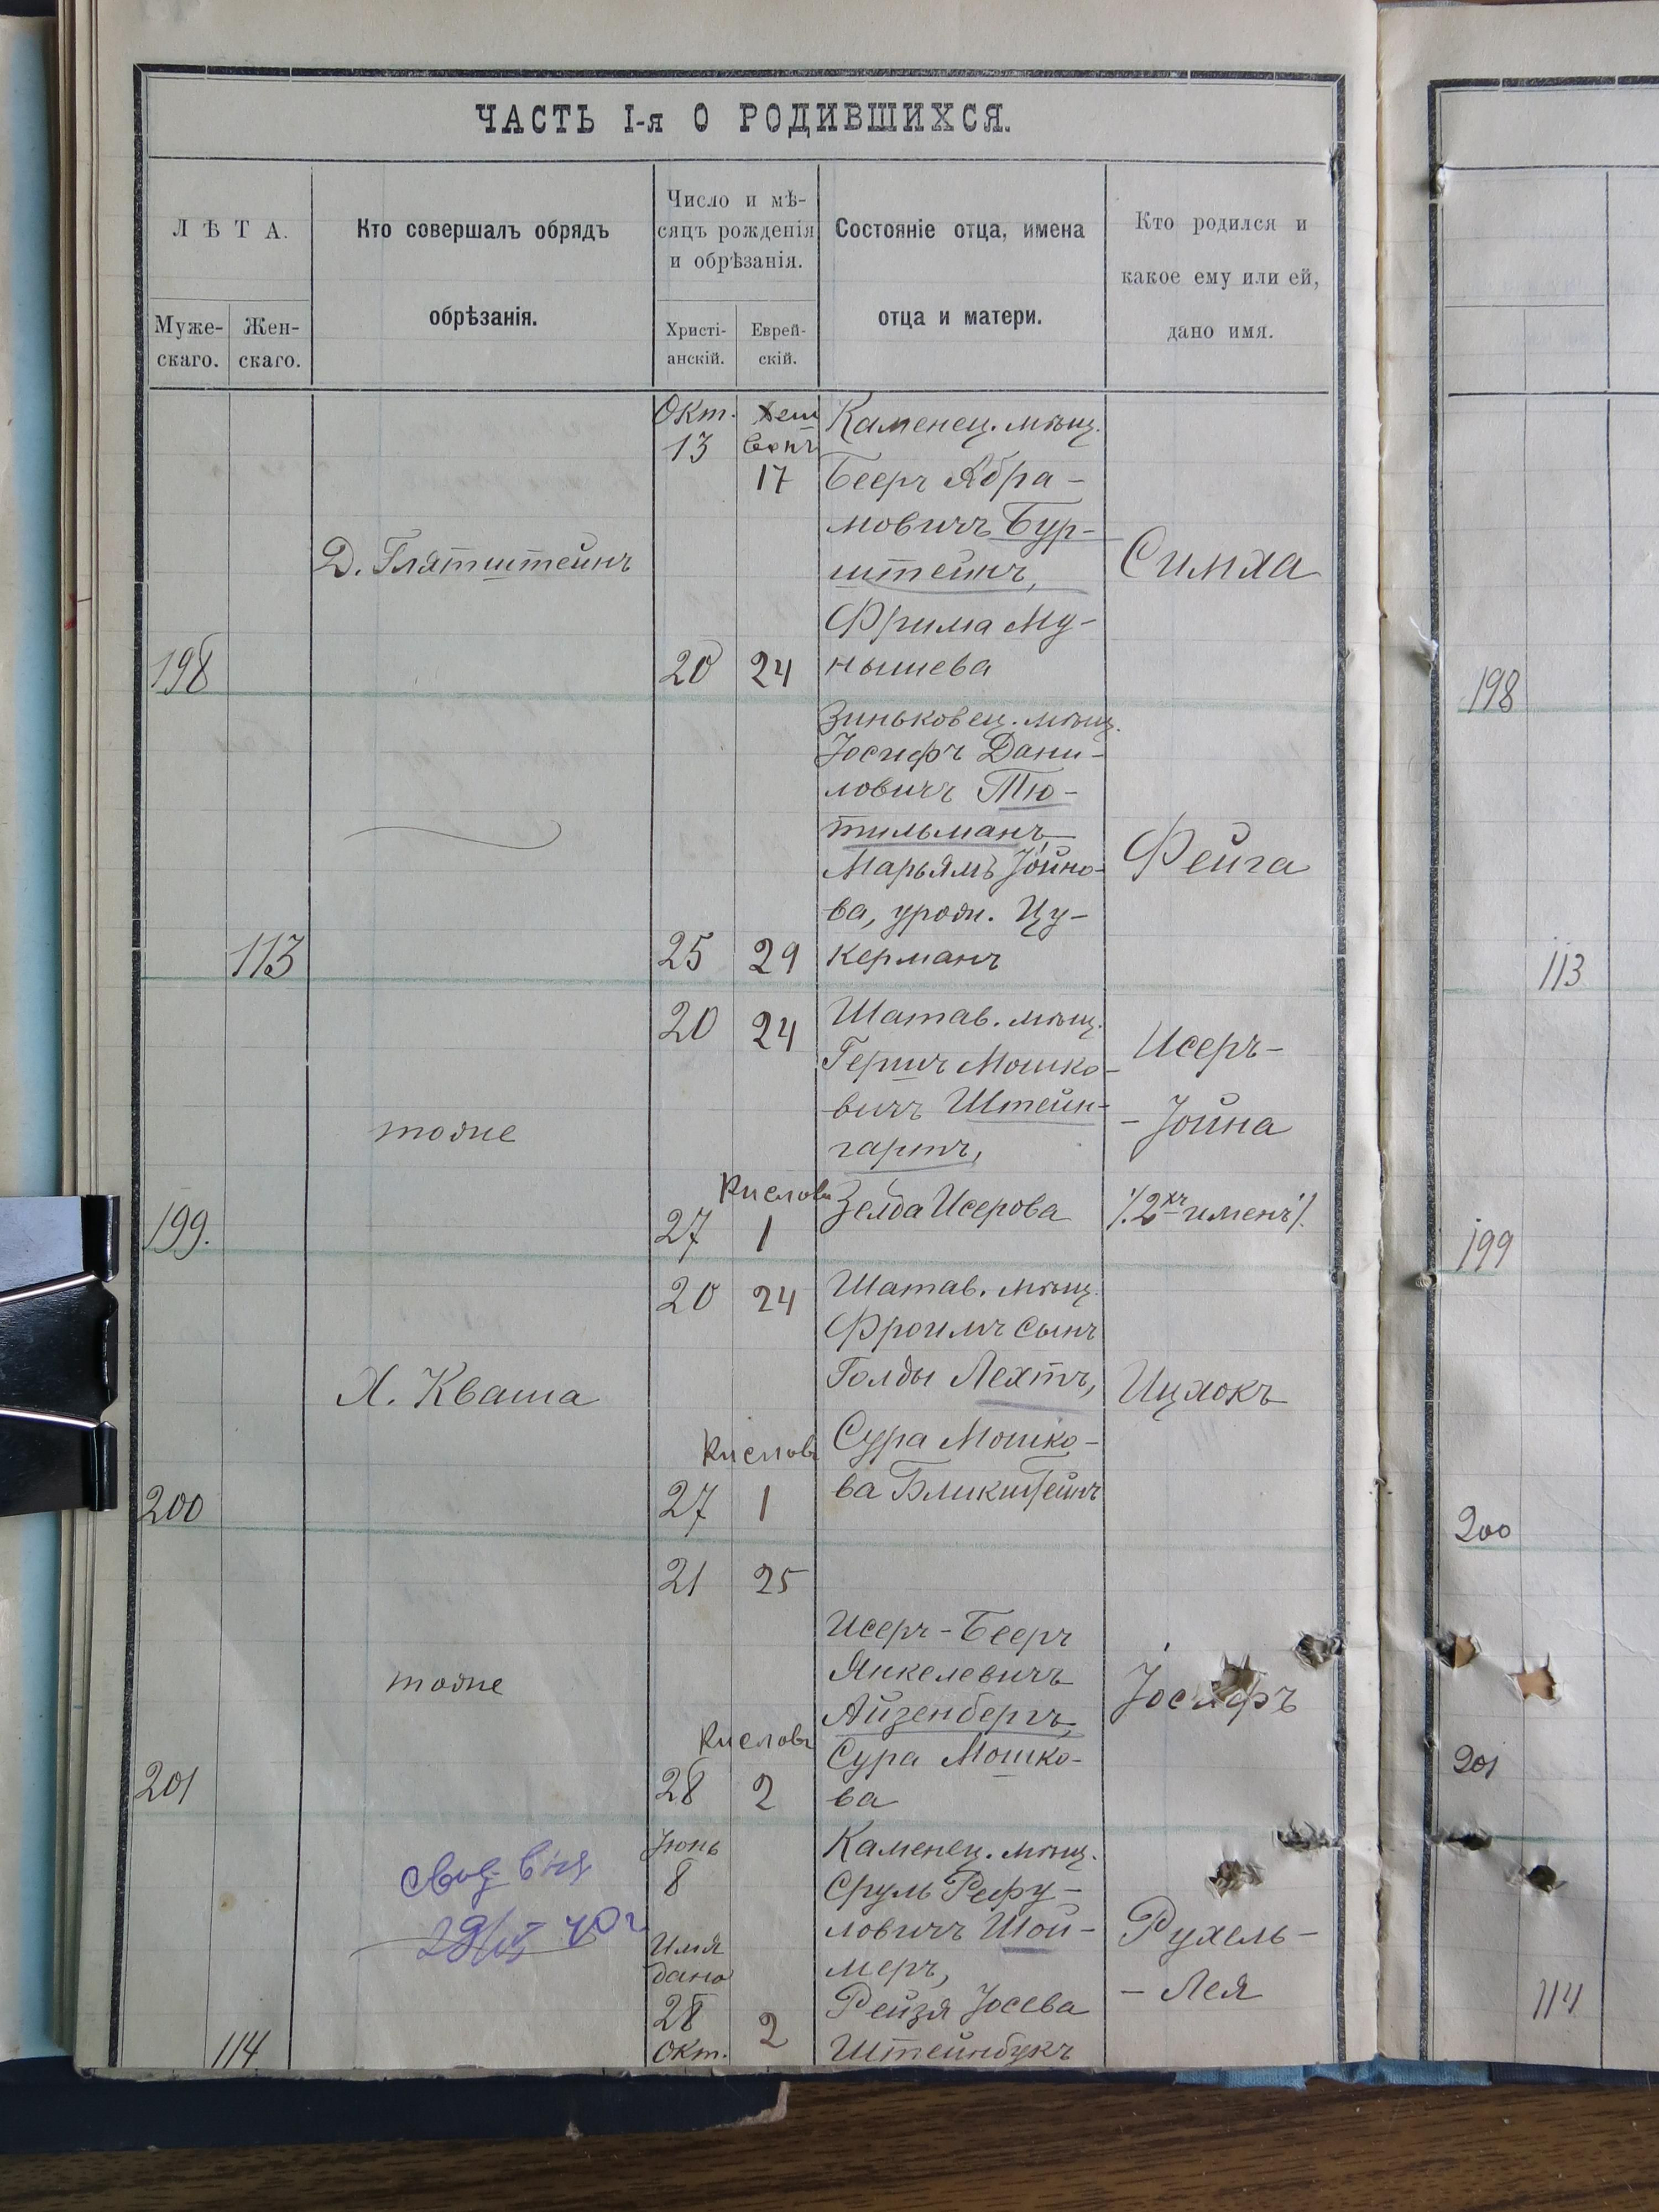 ЧАСТЬ I-я О РОДИВШИХСЯ.
ЛѢТА.
Муже-
скаго.
Жен-
скаго.
Кто совершалъ обрядъ
обрѣзанія.
Число и мѣ-
сяцъ рожденія
и обрѣзанія.
Христі-
анскій.
Еврей-
скій.
Состояніе отца, имена
отца и матери.
Кто родился и
какое ему или ей,
дано имя.
198
Д. Глятштейнъ
Окт.
13
Хеш
вонъ
17
20
24
Каменец. мѣщ.
Бееръ Абра-
мовичъ Бур-
штейнъ,
Фрима Му-
нышева
Симха
198
113
25
29
Зиньковец. мѣщ.
Іосифъ Дани-
ловичъ Тю-
тильманъ,
Марьямъ Іойно-
ва, урожд. Цу-
керманъ
Фейга
113
199.
тоже
20
24
Кислевъ
27
1
Шатав. мѣщ.
Гершъ Мошко-
вичъ Штейн-
гартъ,
Зелда Исерова
Исеръ-
- Іойна
/.2хъ именъ/.
199
200
Х. Кваша
20
24
Кисловъ
27
1
Шатав. мѣщ.
Фроимъ сынъ
Голды Лехтъ,
Сура Мошко-
ва Бликштейнъ
Ицхокъ
200
201
тоже
21
25
Кисловъ
28
2
Исеръ-Бееръ
Янкелевичъ
Айзенбергъ,
Сура Мошко-
ва
Іосифъ
201
114
29/IV 40 г
Іюнь
8
Имя
дано
28
Окт.
2
Каменец. мѣщ.
Сруль Рефу-
ловичъ Шой-
меръ,
Рейзя Іосева
Штейнбукъ
Рухель-
- Лея
114